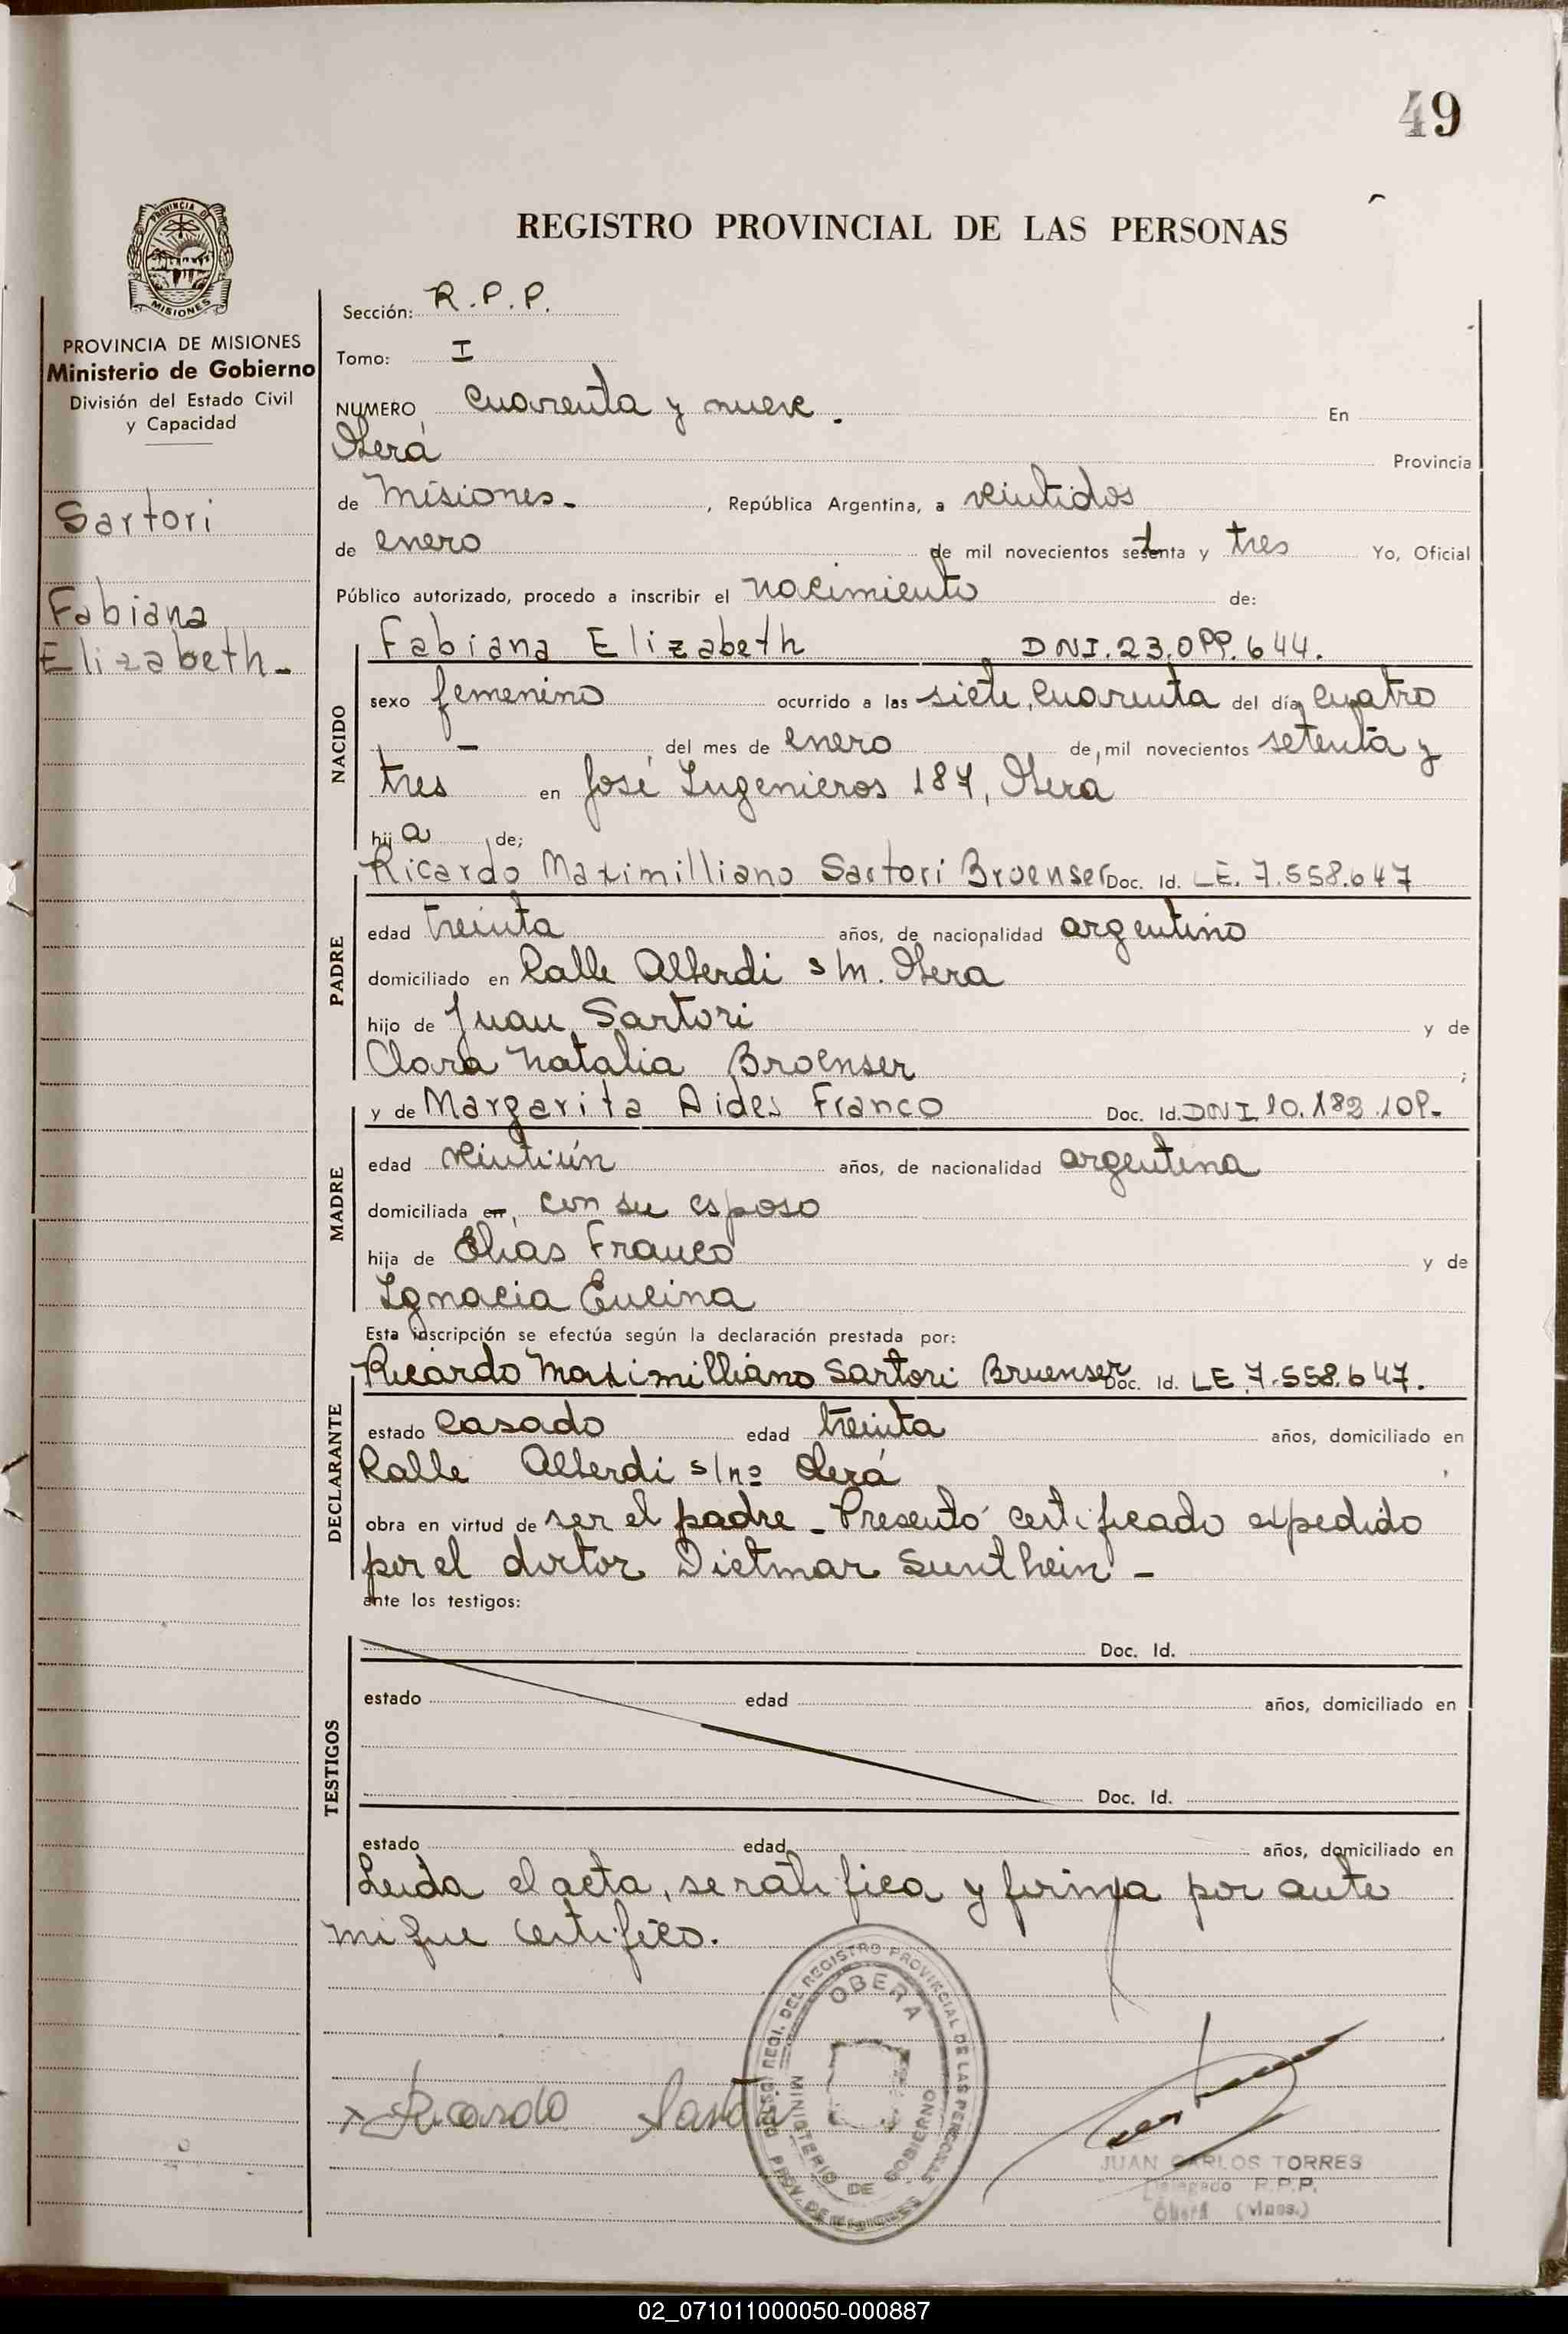 49
REGISTRO PROVINCIAL DE LAS PERSONAS
PROVINCIA DE MISIONES
Ministerio de Gobierno
División del Estado Civil
y Capacidad
Sartori
Fabiana
Elizabeth-
Sección: R.P.P.
Tomo: I
NUMERO cuarenta y nueve. En
Oberá Provincia
de Misiones-, República Argentina, a veintidos
de enero de mil novecientos setenta y tres Yo, Oficial
Público autorizado, procedo a inscribir el nacimiento de:
NACIDO
Fabiana Elizabeth DNI.23.099.644.
sexo femenino ocurrido a las siete, cuarenta del día cuatro
- del mes de enero de mil novecientos setenta y
tres en José Ingenieros 187, Oberá
hij a de;
PADRE
Ricardo Maximilliano Sartori Broenser Doc. Id. LE. 7.558.647
edad treinta años, de nacionalidad argentino
domiciliado en Calle Alberdi s/n. Obera
hijo de Juan Sartori y de
Clara Natalia Broenser ;
MADRE
y de Margarita Aides Franco Doc. Id. DNI 10.182.109-
edad veintiún años, de nacionalidad argentina
domiciliada en, con su esposo
hija de Elias Franco y de
Ignacia Encina
Esta inscripción se efectúa según la declaración prestada por:
DECLARANTE
Ricardo Maximilliano Sartori Bruenser Doc. Id. LE.7.558.647.
estado casado edad treinta años, domiciliado en
Calle Alberdi s/nº Oberá
obra en virtud de ser el padre - Presentó certificado expedido
por el doctor Dietmar Sunthein -
ante los testigos:
TESTIGOS
Doc. Id.
estado edad años, domiciliado en
Doc. Id.
estado edad años, domiciliado en
Leida el acta, se ratifica y firma por ante
mi que certifico.
Ricardo Sartori
OBERA
MINISTERIO DE GOBIERNO
REGISTRO PROVINCIAL DE LAS PERSONAS
PROV. DE MISIONES
JUAN CARLOS TORRES
Delegado R.P.P.
Oberá (Mnes.)
02_071011000050-000887